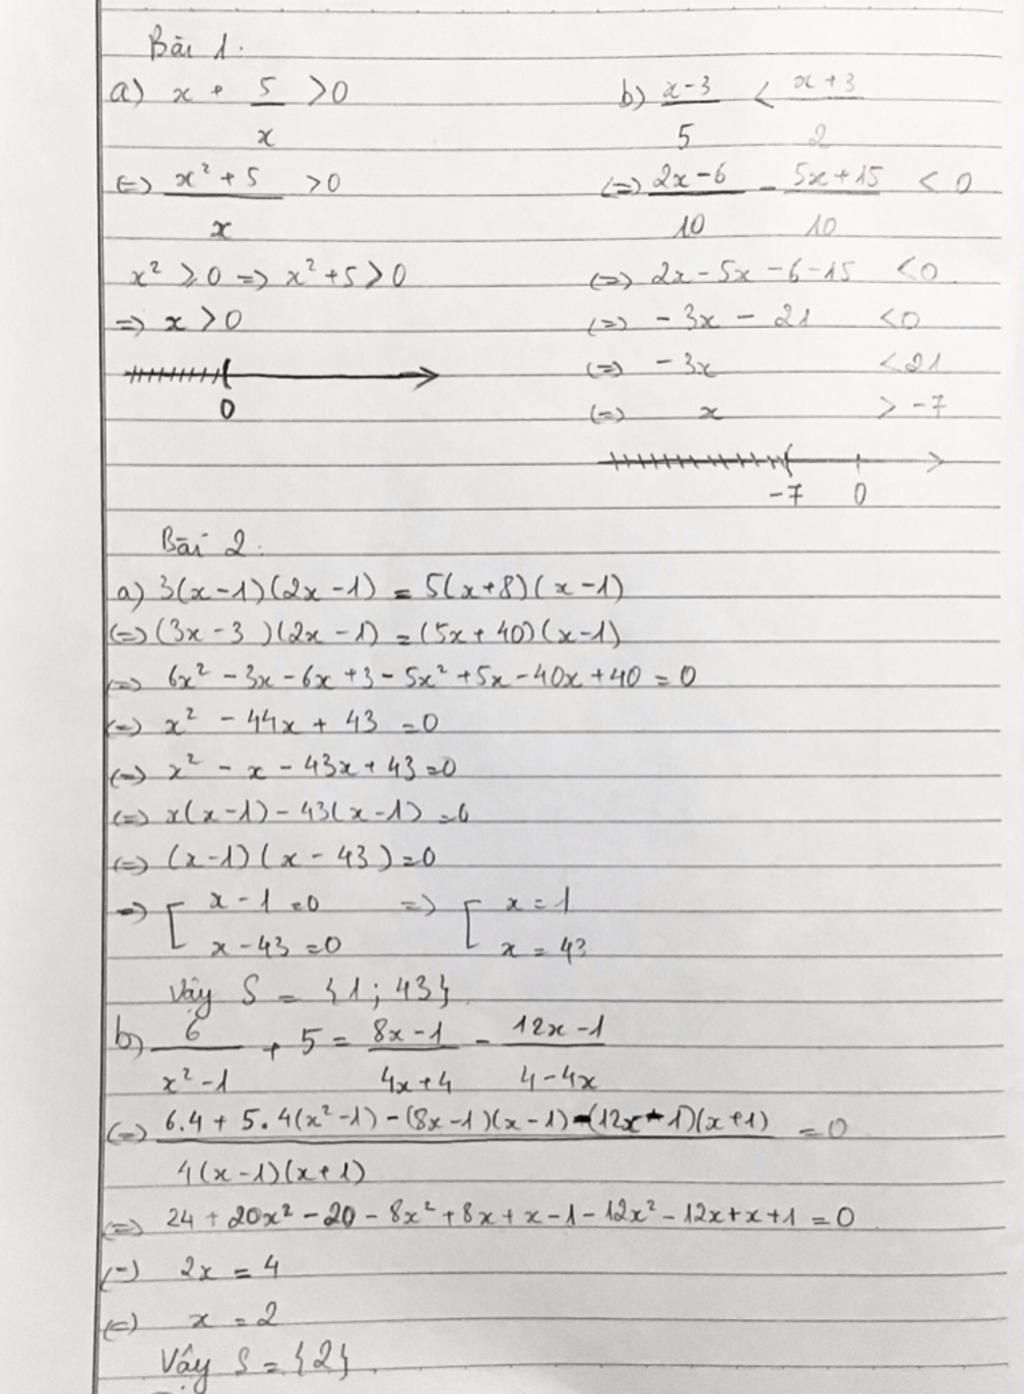 Bài 1:
a) x + 5/x > 0
(=) x² + 5 / x > 0
x² ⩾ 0 => x² + 5 > 0
=> x > 0
0
b) x-3 / 5 < x+3 / 2
(=) 2x-6 / 10 - 5x+15 / 10 < 0
(=) 2x - 5x - 6 - 15 < 0
(=) - 3x - 21 < 0
(=) - 3x < 21
(=) x > -7
-7 0
Bài 2:
a) 3(x-1)(2x-1) = 5(x+8)(x-1)
(=) (3x-3)(2x-1) = (5x+40)(x-1)
(=) 6x² - 3x - 6x + 3 - 5x² + 5x - 40x + 40 = 0
(=) x² - 44x + 43 = 0
(=) x² - x - 43x + 43 = 0
(=) x(x-1) - 43(x-1) = 0
(=) (x-1)(x-43) = 0
=> [ x-1 = 0 => [ x = 1
x-43 = 0 x = 43
Vậy S = {1; 43}
b) 6 / x²-1 + 5 = 8x-1 / 4x+4 - 12x-1 / 4-4x
(=) 6.4 + 5.4(x²-1) - (8x-1)(x-1) - (12x-1)(x+1) / 4(x-1)(x+1) = 0
(=) 24 + 20x² - 20 - 8x² + 8x + x - 1 - 12x² - 12x + x + 1 = 0
(=) 2x = 4
(=) x = 2
Vậy S = {2}